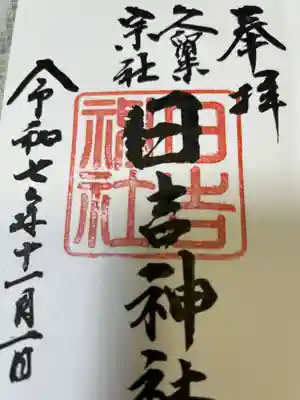 奉拝
久留米
宗社
日吉神社
日吉
神社
令和七年十一月一日